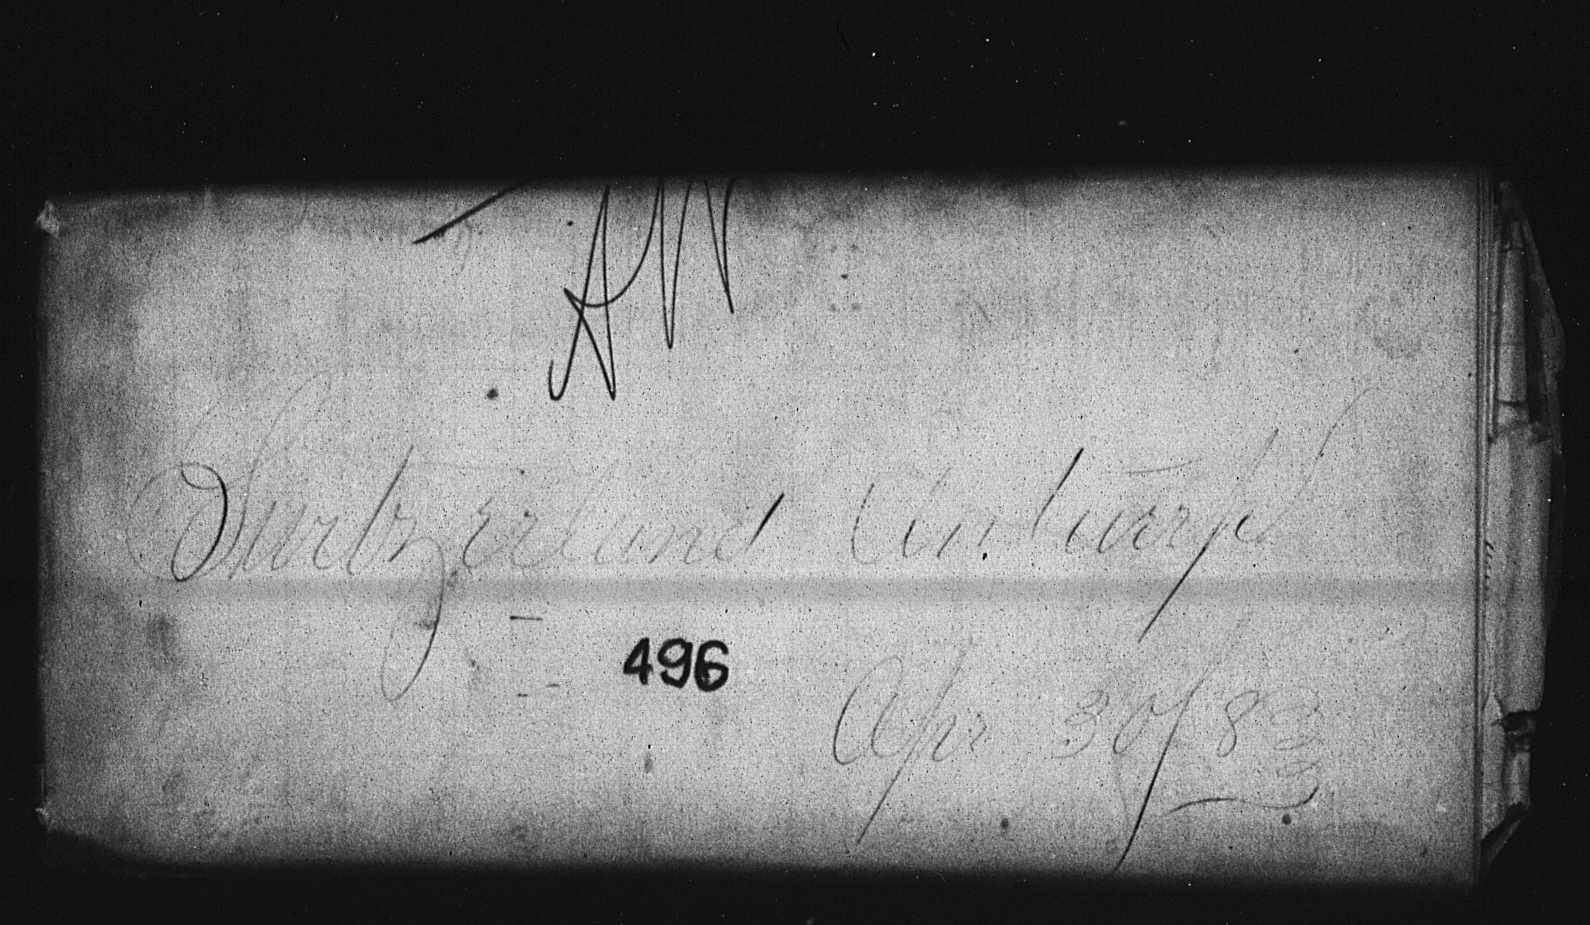 Switzerland Antwerp
496
Apr 30/83